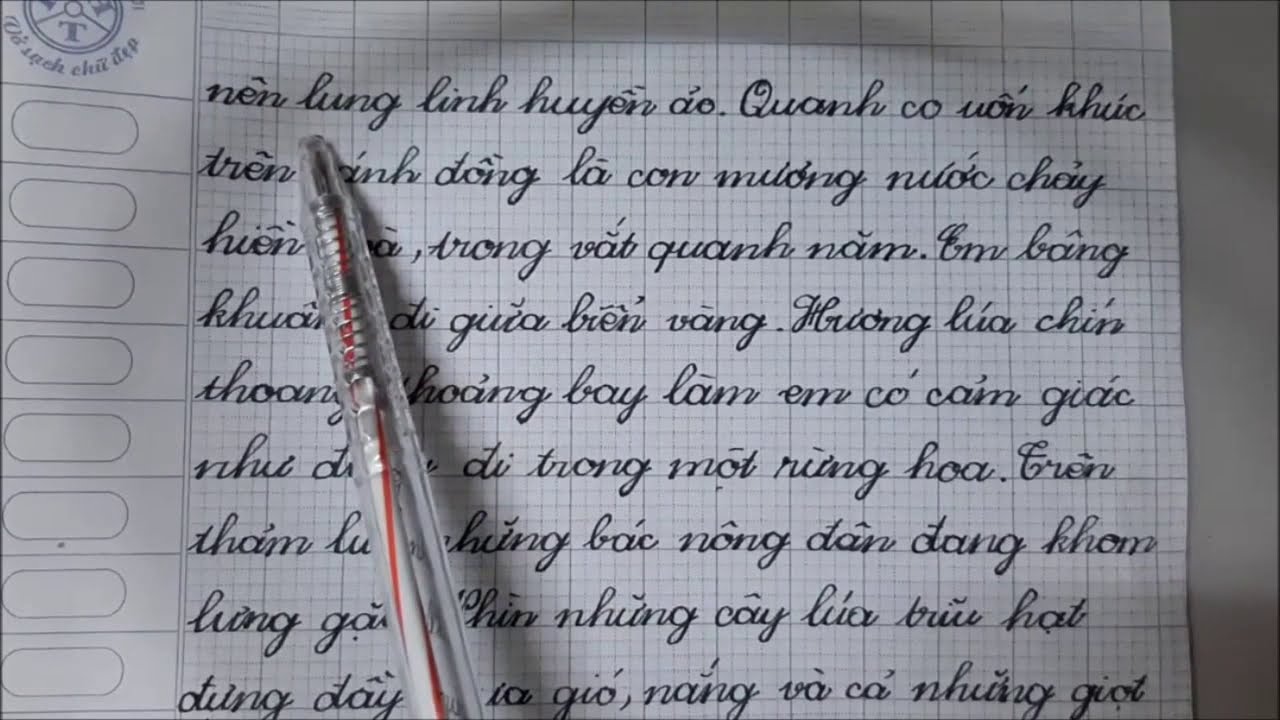 Vở sạch chữ đẹp
nên lung linh huyền ảo. Quanh co uốn khúc
trên đồng là con mương nước chảy
hiền , trong vắt quanh năm. Em bâng
đi giữa biển vàng. Hương lúa chín
thoảng bay làm em có cảm giác
như đi trong một rừng hoa. Trên
thảm những bác nông dân đang khom
lưng Nhìn những cây lúa trĩu hạt
đựng đầy gió, nắng và cả những giọt